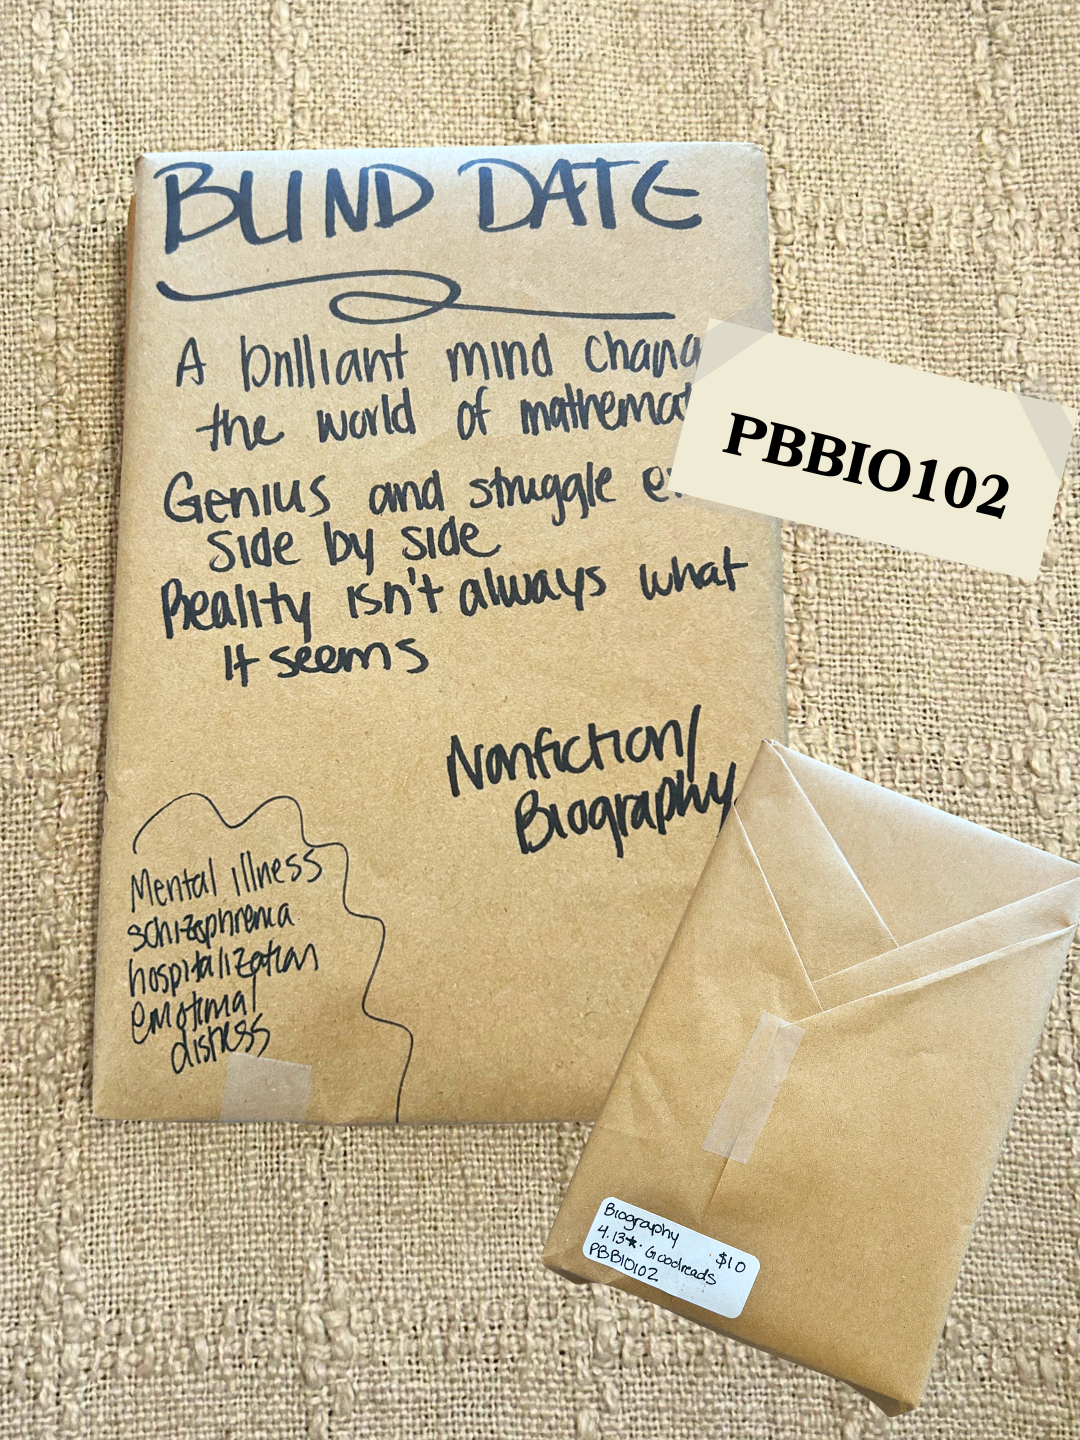 BLIND DATE
A brilliant mind chang
the world of mathemat
PBBIO102
Genius and struggle e
side by side
Reality isn't always what
it seems
Nonfiction/
Biography
Mental illness
schizophrenia
hospitalization
emotional
distress
Biography
4.13★. Goodreads $10
PBBIO102